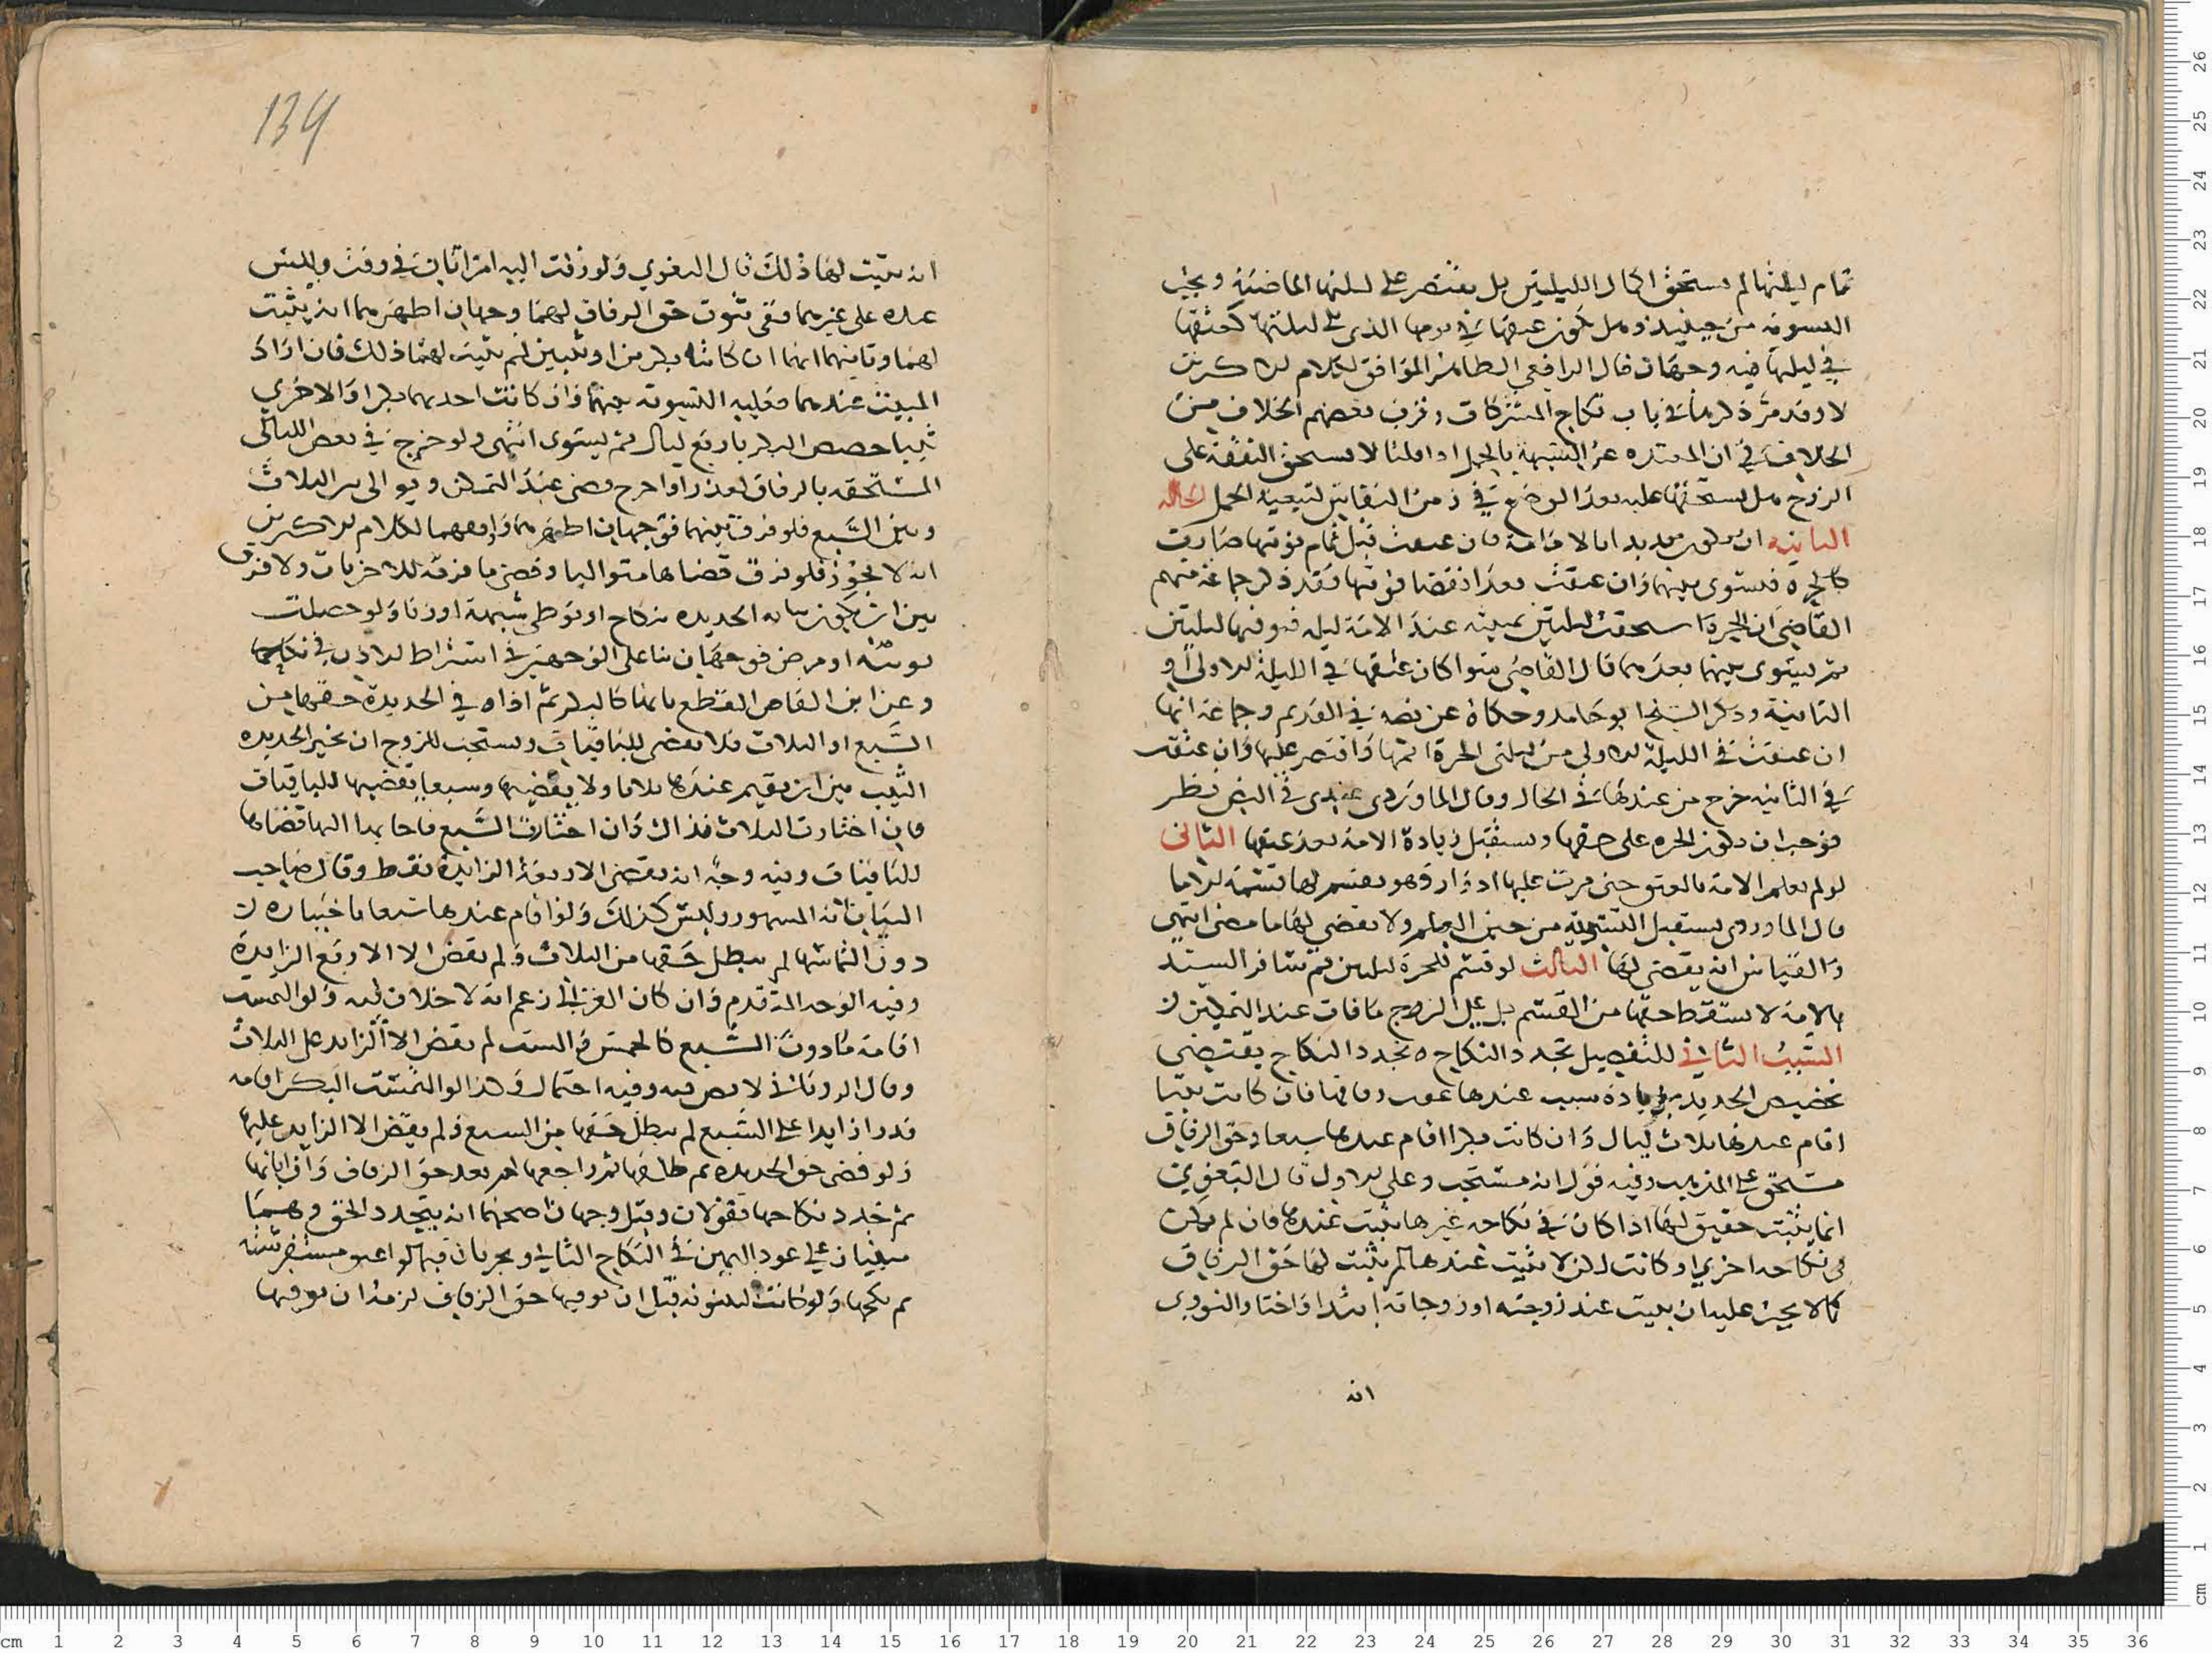 تمام ليلتها لم يستحق اكمال الليلتين بل يقتصر على ليلتها الماضية ويجب
التسوية من حينئذ وهل يكون عتقها في يومها الذي يلي ليلتها كعتقها
في ليلتها فيه وجهان قال الرافعي الظاهر الموافق لكلام الاكثرين
لا وقد مر ذكرهما في باب نكاح المشركات وقرب بعضهم الخلاف من
الخلاف في ان المعتده عن الشبهة بالحمل اذا قلنا لا يستحق النفقة على
الزوج هل يستحقها عليه بعد الوضع في زمن النفاس لتبعية الحمل الحاله
الثانيه ان يكون بعد بدا بالامة فان عتقت قبل تمام نوبتها صارت
كالحره فيستوى بينهما وان عتقت بعد انقضا نوبتها فقد ذكر جماعة منهم
القاضي ان الحرة استحقت ليلتين بمبيته عند الامة ليله فيوفيها ليلتين
ثم يستوى بينهما بعدهما قال القاضي سوا كان عتقها في الليلة الاولى او
الثانية وذكر الشيخ ابو حامد وحكاه عن نصه في القديم وجماعة انها
ان عتقت في الليلة الاولى من ليلتي الحرة اتمها واقتصر عليها وان عتقت
في الثانيه خرج من عندها في الحال وقال الماوردي عندي في النص نظر
فوجب ان يكون الحره على حقها ويستقبل زيادة الامة بعد عتقها الثاني
لو لم تعلم الامة بالعتق حتى مرت عليها ادوار وهو يقسم لها قسمة الاما
قال الماوردي يستقبل التسوية من حين العلم ولا يقضي لها ما مضى انتهى
والقياس ان يقضي لها الثالث لو قسم للحرة ليلتين ثم سافر السيد
بالامة لا يسقط حقها من القسم بل على الزوج ما فات عند التمكن ن
السبب الثاني للتفضيل تجدد النكاح ه تجدد النكاح يقتضي
تخصيص الجديدة بزيادة مبيت عندها عقب زفافها فان كانت ثيبا
اقام عندها ثلاث ليال وان كانت بكرا اقام عندها سبعا وحق الزفاف
مستحق على المذهب وفيه قول انه مستحب وعلى الاول قال البغوي
انما يثبت حقيق لها اذا كان في نكاحه غيرها يبيت عندها فان لم يكن
في نكاحه اخرى او كانت لكن لا يبيت عندها لم يثبت لها حق الزفاف
كما لا يجب عليه ان يبيت عند زوجته او زوجاته ابتدا واختار النووي
انه
134
انه يبيت لها ذلك قال البغوي ولو زفت اليه امراتان في وقت وليس
عنده على غيرهما ففي ثبوت حق الزفاف لهما وجهان اظهرهما انه يثبت
لهما وثانيهما انهما ان كانتا بكرين او ثيبين لم يثبت لهما ذلك فان اراد
المبيت عندهما فعليه التسوية بينهما وان كانت احديهما بكرا والاخرى
ثيبا خصص البكر باربع ليال ثم يستوى انتهى ولو خرج في بعض الليالى
المستحقه بالزفاف لعذر او اخرج قضى عند التمكن ويوالى بين الثلاث
وبين السبع فلو فرق بينهما فوجهان اظهرهما واوفقهما لكلام الاكثرين
انه لا يجوز فلو فرق قضاها متواليا وقضى ما فرقه للاخريات ولا فرق
بين ان يكون الجديده بنكاح او بوطي شبهة او زنا ولو حصلت
بوثبه او مرض فوجهان بنا على الوجهين في اشتراط الاذن في نكاحها
وعن ابن القاص القطع بانها كالبكر ثم اذا وفى الجديدة حقها من
السبع او الثلاث فلا يقضي للباقيات ويستحب للزوج ان يخير الجديده
الثيب بين ان يقيم عندها ثلاثا ولا يقضيها وسبعا يقضيها للباقيات
فان اختارت الثلاث فذاك وان اختارت السبع فاجابها اليها قضاها
للباقيات وفيه وجه انه يقضي الاربعة الزايدة فقط وقال صاحب
البيان انه المشهور وليس كذلك ولو اقام عندها سبعا باختياره ن
دون التماسها لم يبطل حقها من الثلاث ولم يقض الا الاربع الزايدة
وفيه الوجه المتقدم وان كان الغزالي زعم انه لا خلاف فيه ولو التمست
اقامة ما دون السبع كالخمس والست لم يقض الا الزايد على الثلاث
وقال الروياني لا نص فيه وفيه احتمال وكذا لو التمست البكر اقامه
قدر زايدا على السبع لم يبطل حقها من السبع ولم يقض الا الزايد عليها
ولو قضى حق الجديده ثم طلقها ثم راجعها لم يعد حق الزفاف وان ابانها
ثم جدد نكاحها فقولان وقيل وجهان اصحهما انه يتجدد الحق وهما
مبنيان على عود اليمين في النكاح الثاني ويجريان فيما لو اعتق مستفرشته
ثم نكحها ولو كانت البينونة قبل ان يوفيها حق الزفاف لزمه ان يوفيها